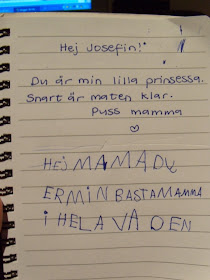 Hej Josefin!
Du är min lilla prinsessa.
Snart är maten klar.
Puss mamma
HEJ MAMA DU
ER MIN BASTA MAMMA
i HELA VÄ DEN